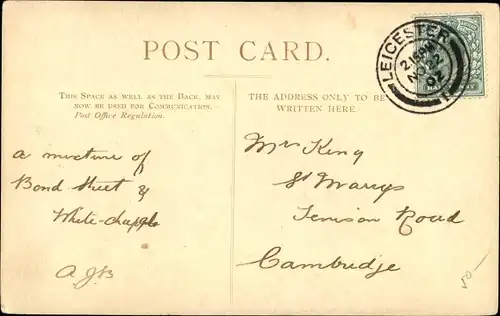 POST CARD.
LEICESTER
THIS SPACE AS WELL AS THE BACK, MAY
NOW BE USED FOR COMMUNICATION.—
Post Office Regulation.
THE ADDRESS ONLY TO BE
WRITTEN HERE.
a mixture of
Bond Street &
White-chapple
A.J.B
Mrs King
St Marys
Tenison Road
Cambridge
50-